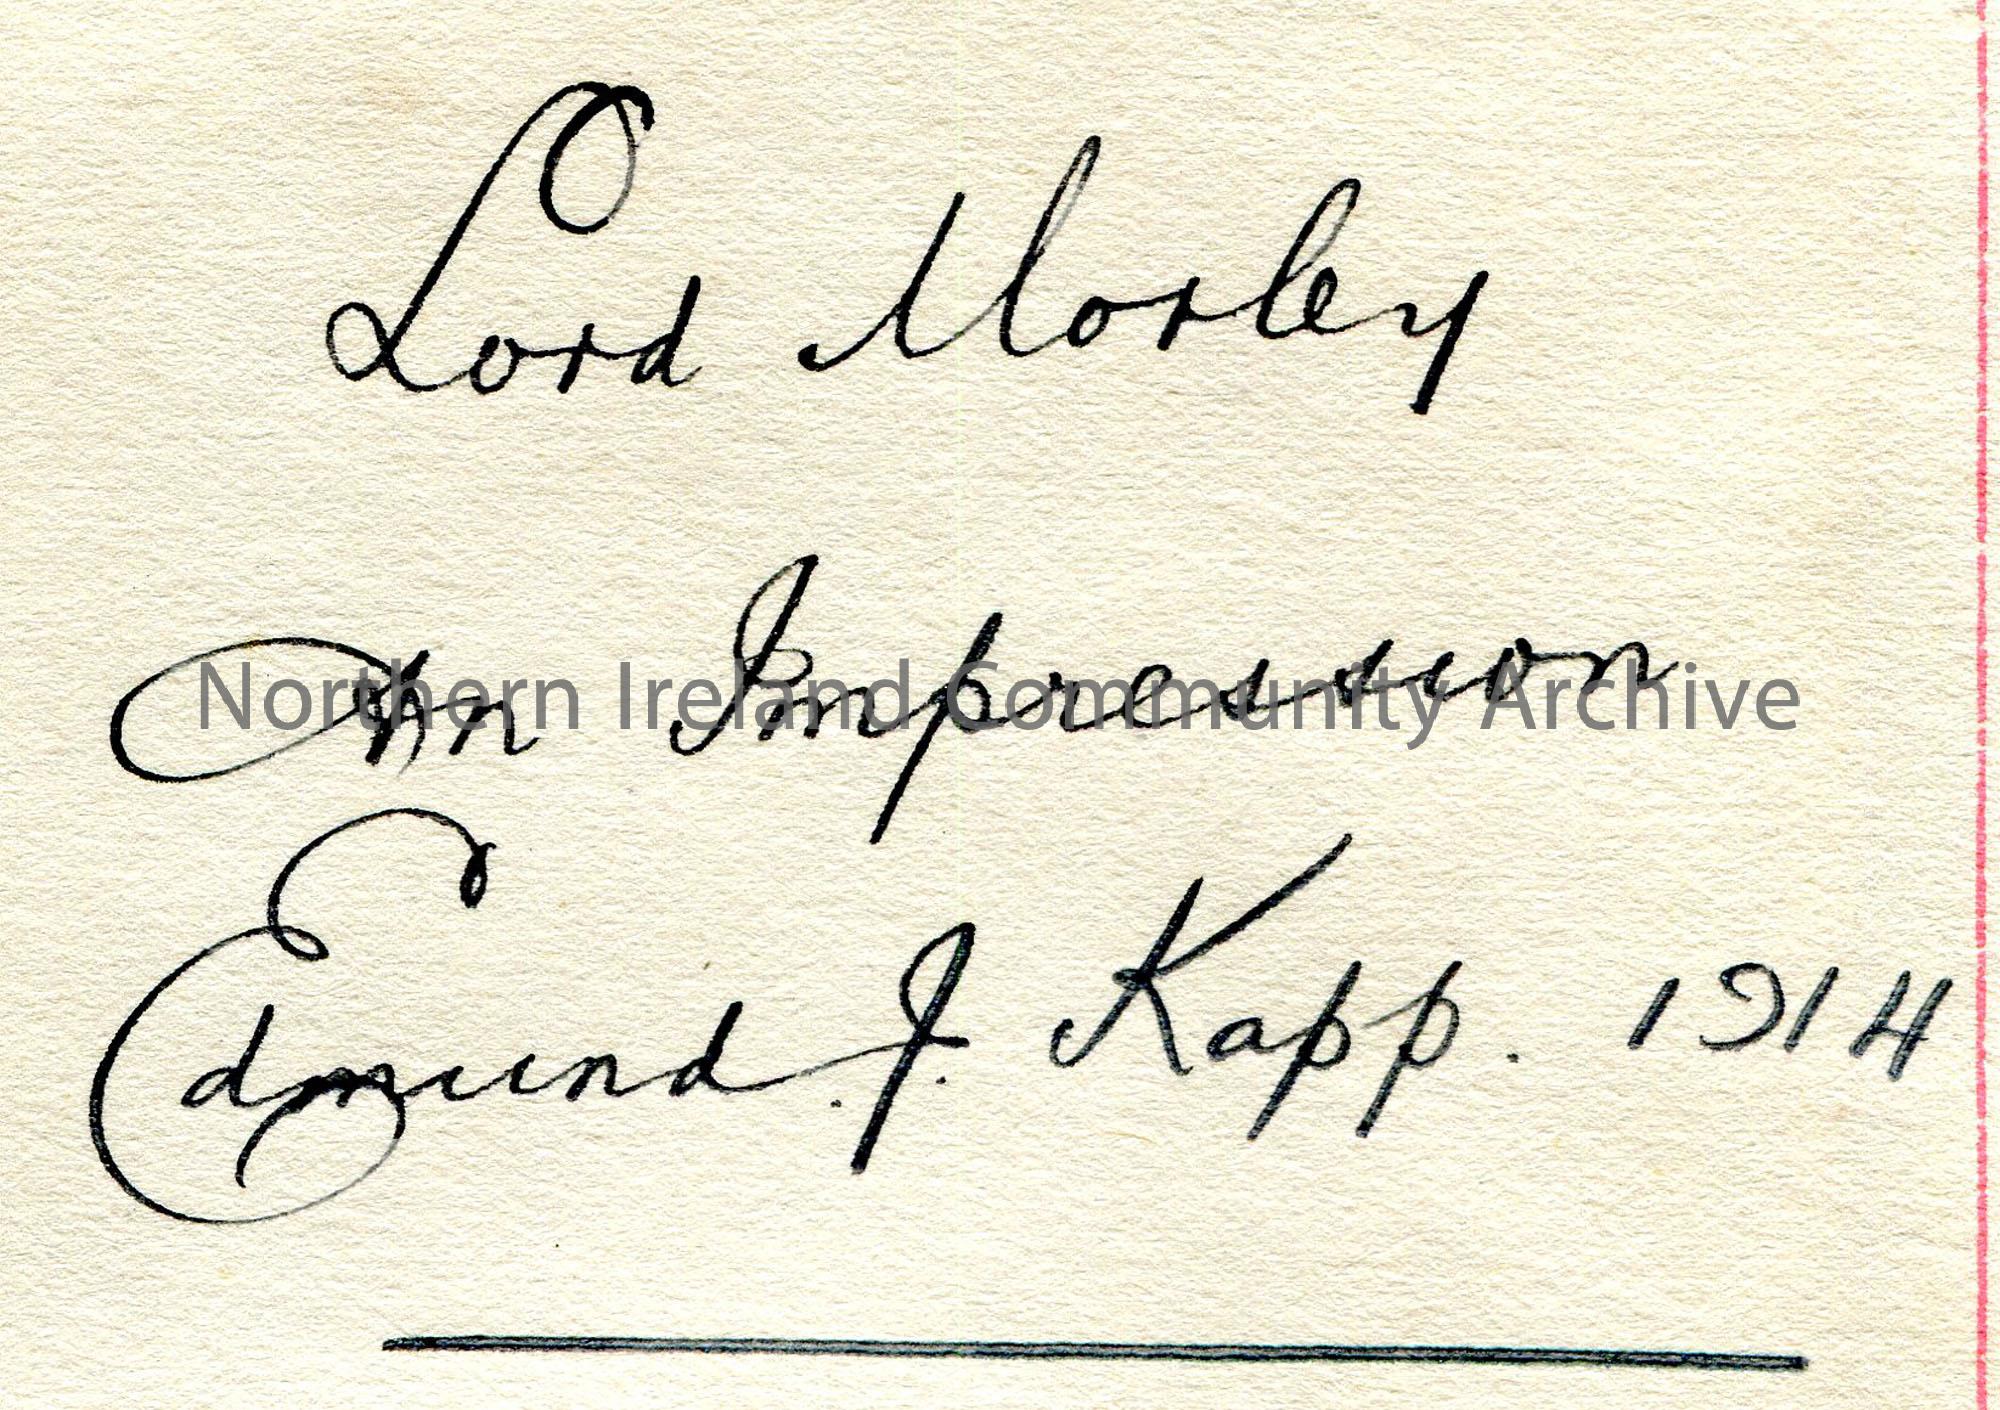 Lord Morley
An Impression
Northern Ireland Community Archive
Edmund J. Kapp. 1914